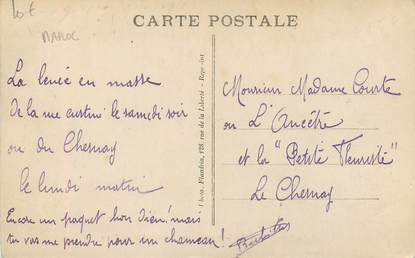 lot
MAROC
CARTE POSTALE
La levée en masse
De la rue Custine le samedi soir
ou du Chernay
le lundi matin
Encore un paquet bon Dieu! mais
tu vas me prendre pour un chameau!
Photo. Flandrin, 128, rue de la Liberté - Repr. int.
Monsieur Madame Courte
ou L'Ancêtre
et la "Petite Fleuriste"
Le Chernay